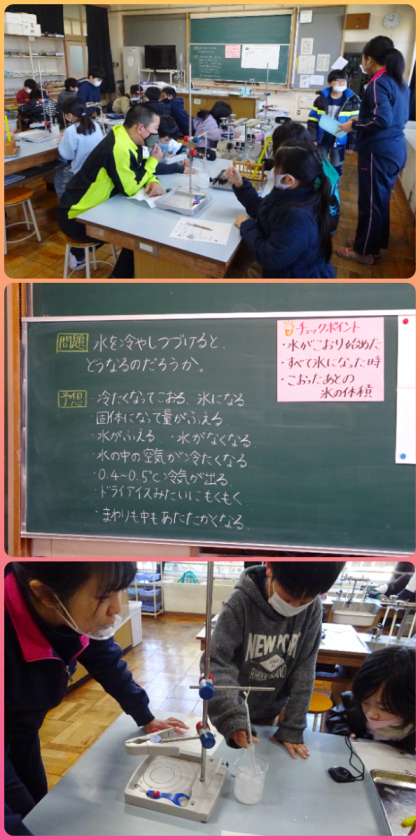 問題 水を冷やしつづけると、
どうなるのだろうか。
予想 ・冷たくなってこおる、氷になる
・固体になって量がふえる
・水がふえる ・水がなくなる
・水の中の空気が冷たくなる
・0.4~0.5℃冷気が出る
・ドライアイスみたいにもくもく
・まわりも中もあたたかくなる
チェックポイント
・水がこおり始めた
・すべて氷になった時
・こおったあとの
氷の体積
NEWPORT